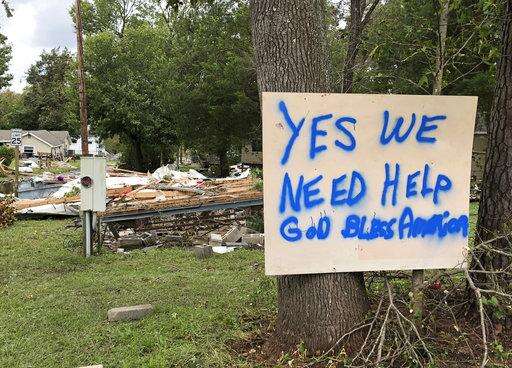 YES WE
NEED HELP
GOD BLESS America